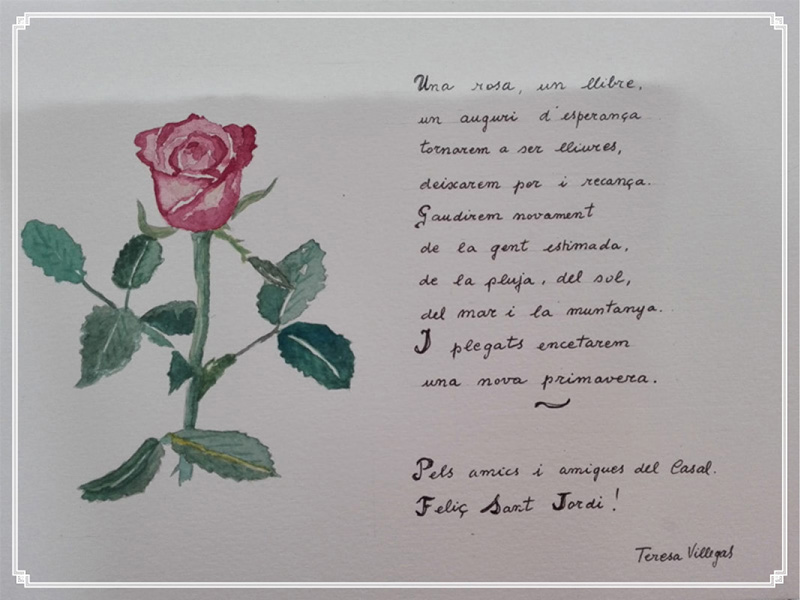 Una rosa, un llibre,
un auguri d'esperança
tornarem a ser lliures,
deixarem por i recança.
Gaudirem novament
de la gent estimada,
de la pluja, del sol,
del mar i la muntanya.
I plegats encetarem
una nova primavera.
Pels amics i amigues del Casal.
Feliç Sant Jordi!
Teresa Villegas